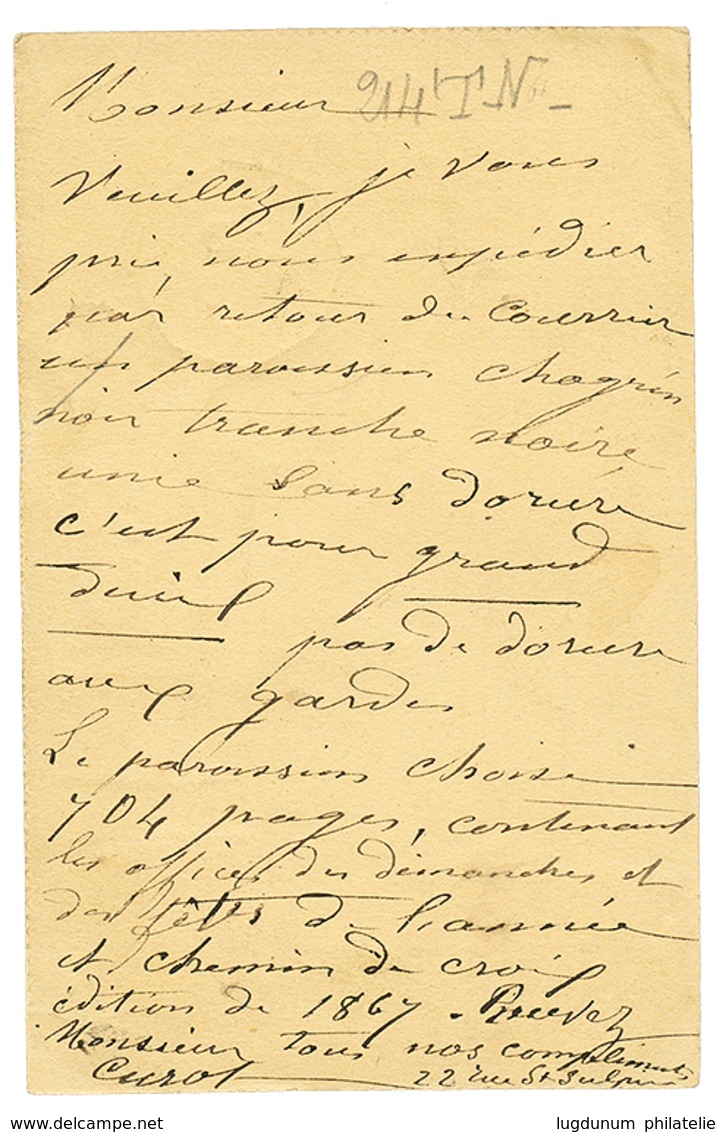 Monsieur 214 T N
Veuillez, je vous
prie, nous expédier
par retour du Courrier
un paroissien chagrin
noir tranche noire
unie sans dorure
c'est pour grand
deuil pas de dorure
aux gardes
Le paroissien choisi
704 pages, contenant
les offices des dimanches et
des fêtes de l'année
et chemin de croix
édition de 1867. Recevez
Monsieur tous nos compliments
Curot 22 rue St Sulpice
lugdunum philatelie